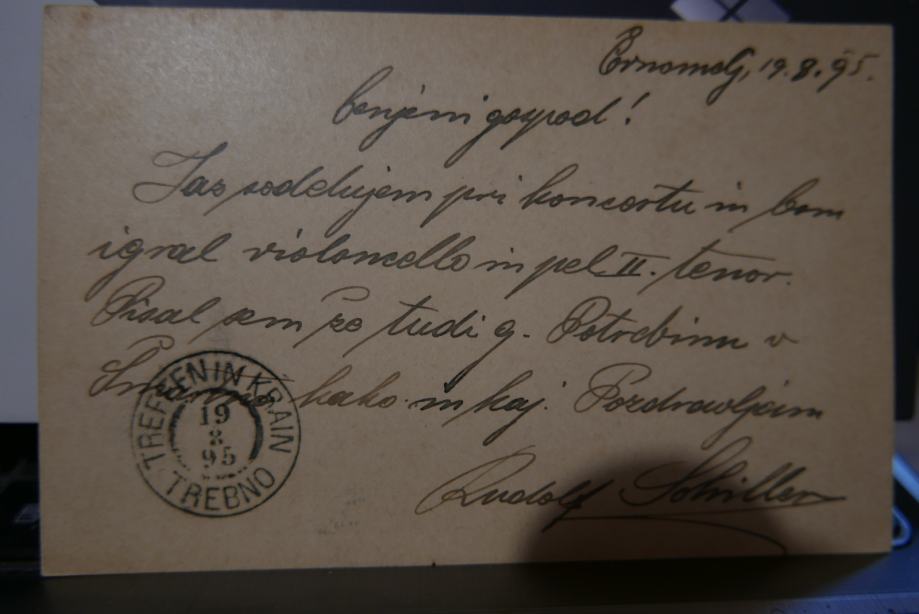 Črnomelj, 19. 8. 95.
Cenjeni gospod!
Jas sodelujem pri koncertu in bom
igral violoncello in pel II. tenor.
Pisal sem že tudi g. Potrebinu v
kako in kaj. Pozdravljam
Rudolf Schiller
TREFFEN IN KRAIN
19
8
95
TREBNO